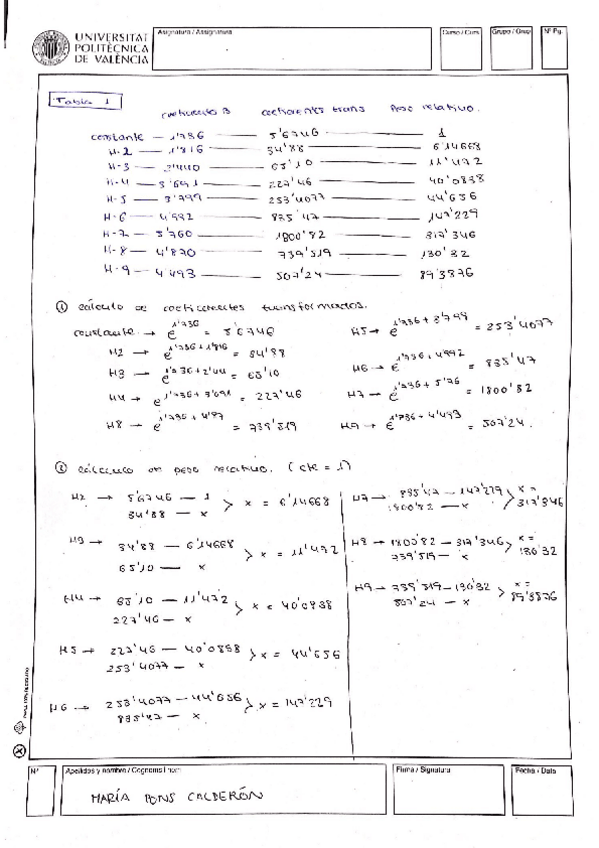 UNIVERSITAT
POLITÈCNICA
DE VALÈNCIA
Asignatura / Assignatura
Curso / Curs
Grupo / Grup
Nº Pg.
Tabla 1
coeficiente B coeficientes trans Peso relativo.
constante — 1'736 — 5'6746 — 1
H-2 — 1'816 — 34'88 — 6'14668
H-3 — 2'440 — 65'10 — 11'472
H-4 — 3'691 — 227'46 — 40'0838
H-5 — 3'799 — 253'4077 — 44'656
H-6 — 4'992 — 835'47 — 147'229
H-7 — 5'760 — 1800'82 — 317'346
H-8 — 4'870 — 739'519 — 130'32
H-9 — 4'493 — 507'24 — 89'3876
① cálculo de coeficientes transformados.
constante → e^1'736 = 5'6746 H5 → e^1'736 + 3'799 = 253'4077
H2 → e^1'736 + 1'816 = 34'88
H3 → e^1'736 + 2'44 = 65'10 H6 → e^1'736 + 4'992 = 835'47
H4 → e^1'736 + 3'691 = 227'46 H7 → e^1'736 + 5'76 = 1800'82
H8 → e^1'736 + 4'87 = 739'519 H9 → e^1'736 + 4'493 = 507'24.
② cálculo de peso relativo. (cte = 1)
H2 → 5'6746 — 1 > x = 6'14668 H7 → 835'47 — 147'229 > x = 317'346
34'88 — x 1800'82 — x
H3 34'88 — 6'14668 > x = 11'472 H8 → 1800'82 — 317'346 > x = 130'32
65'10 — x 739'519 — x
H4 → 65'10 — 11'472 > x = 40'0838 H9 → 739'519 — 130'32 > x = 89'3876
227'46 — x 507'24 — x
H5 → 227'46 — 40'0838 > x = 44'656
253'4077 — x
H6 → 253'4077 — 44'656 > x = 147'229
835'47 — x
Nº
Apellidos y nombre / Cognoms i nom
Firma / Signatura
Fecha / Data
MARÍA PONS CALDERÓN